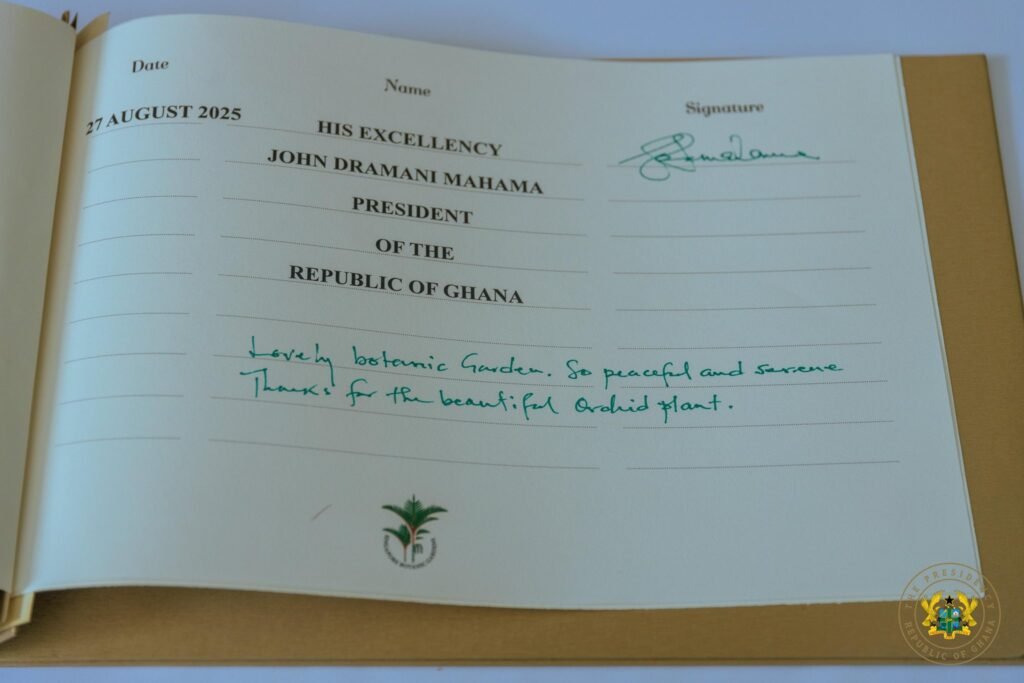 Date
Name
Signature
27 AUGUST 2025
HIS EXCELLENCY
JOHN DRAMANI MAHAMA
PRESIDENT
OF THE
REPUBLIC OF GHANA
Lovely botanic Garden. So peaceful and serene
Thanks for the beautiful Orchid plant.
SINGAPORE BOTANIC GARDENS
THE PRESIDENCY
REPUBLIC OF GHANA